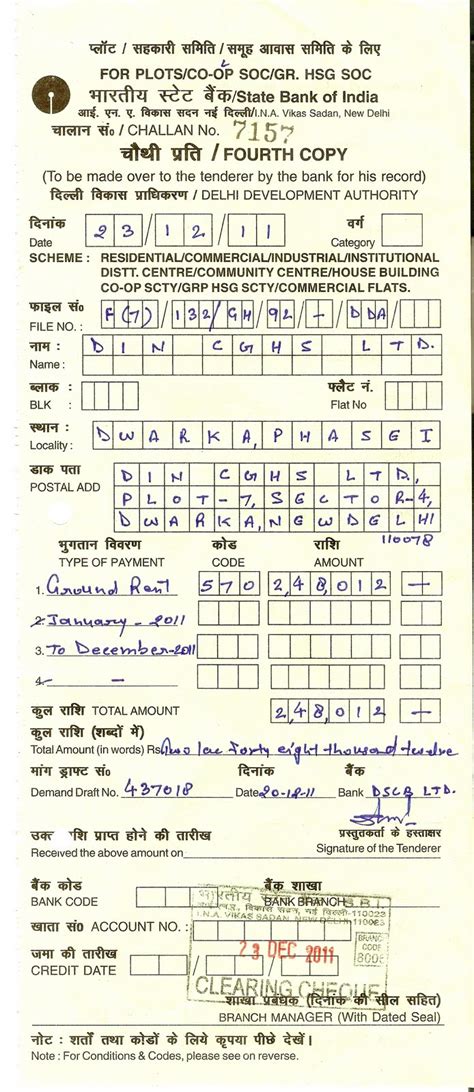 प्लॉट / सहकारी समिति / समूह आवास समिति के लिए
FOR PLOTS/CO-OP SOC/GR. HSG SOC
भारतीय स्टेट बैंक/State Bank of India
आई. एन. ए. विकास सदन नई दिल्ली/I.N.A. Vikas Sadan, New Delhi
चालान सं०/ CHALLAN No. 7157
चौथी प्रति / FOURTH COPY
(To be made over to the tenderer by the bank for his record)
दिल्ली विकास प्राधिकरण / DELHI DEVELOPMENT AUTHORITY
दिनांक 23/12/11 वर्ग
Date Category
SCHEME : RESIDENTIAL/COMMERCIAL/INDUSTRIAL/INSTITUTIONAL
DISTT. CENTRE/COMMUNITY CENTRE/HOUSE BUILDING
CO-OP SCTY/GRP HSG SCTY/COMMERCIAL FLATS.
फाइल सं० F(7)/132/GH/92/-DDA/
FILE NO. :
नाम : DIN CGHS LTD.
Name :
ब्लाक : फ्लैट नं.
BLK : Flat No
स्थान : DWARKA, PHASE I
Locality :
डाक पता DIN CGHS LTD,
POSTAL ADD PLOT-7, SECTOR-4,
DWARKA, NEW DELHI
110078
भुगतान विवरण कोड राशि
TYPE OF PAYMENT CODE AMOUNT
1. Ground Rent 570 2,48,012 -
2. January - 2011
3. To December-2011
4. -
कुल राशि TOTAL AMOUNT 2,48,012 -
कुल राशि (शब्दों में)
Total Amount (in words) Rs. Two lac forty eight thousand twelve
मांग ड्राफ्ट सं० दिनांक बैंक
Demand Draft No. 437018 Date 20-12-11 Bank DSCB LTD.
उक्त राशि प्राप्त होने की तारीख प्रस्तुतकर्ता के हस्ताक्षर
Received the above amount on Signature of the Tenderer
बैंक कोड बैंक शाखा
BANK CODE BANK BRANCH
भारतीय S.B.I.
विकास सदन, नई दिल्ली-110023
I.N.A. VIKAS SADAN, NEW DELHI 110023
खाता सं० ACCOUNT NO. :
BRANCH
CODE
जमा की तारीख 23 DEC 2011
CREDIT DATE
CLEARING CHEQUE
शाखा प्रबंधक (दिनांक की सील सहित)
BRANCH MANAGER (With Dated Seal)
नोट : शर्तों तथा कोडों के लिये कृपया पीछे देखें।
Note : For Conditions & Codes, please see on reverse.